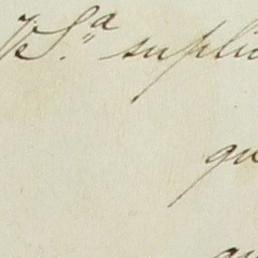 V S.ª supli
qu